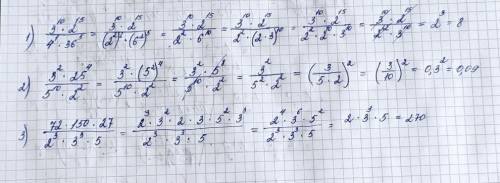 1) (3¹⁰ · 2¹⁵)/(4 · 36⁵) = (3¹⁰ · 2¹⁵)/((2²) · (6²)⁵) = (3¹⁰ · 2¹⁵)/(2² · 6¹⁰) = (3¹⁰ · 2¹⁵)/(2² · (2·3)¹⁰) = (3¹⁰ · 2¹⁵)/(2² · 2¹⁰ · 3¹⁰) = (3¹⁰ · 2¹⁵)/(2¹² · 3¹⁰) = 2³ = 8
2) (3² · 25⁴)/(5¹⁰ · 2²) = (3² · (5²)⁴)/(5¹⁰ · 2²) = (3² · 5⁸)/(5¹⁰ · 2²) = 3²/(5² · 2²) = (3/(5·2))² = (3/10)² = 0,3² = 0,09
3) (72 · 150 · 27)/(2³ · 3³ · 5) = (2³ · 3² · 2 · 3 · 5² · 3³)/(2³ · 3³ · 5) = (2⁴ · 3⁶ · 5²)/(2³ · 3³ · 5) = 2 · 3³ · 5 = 270